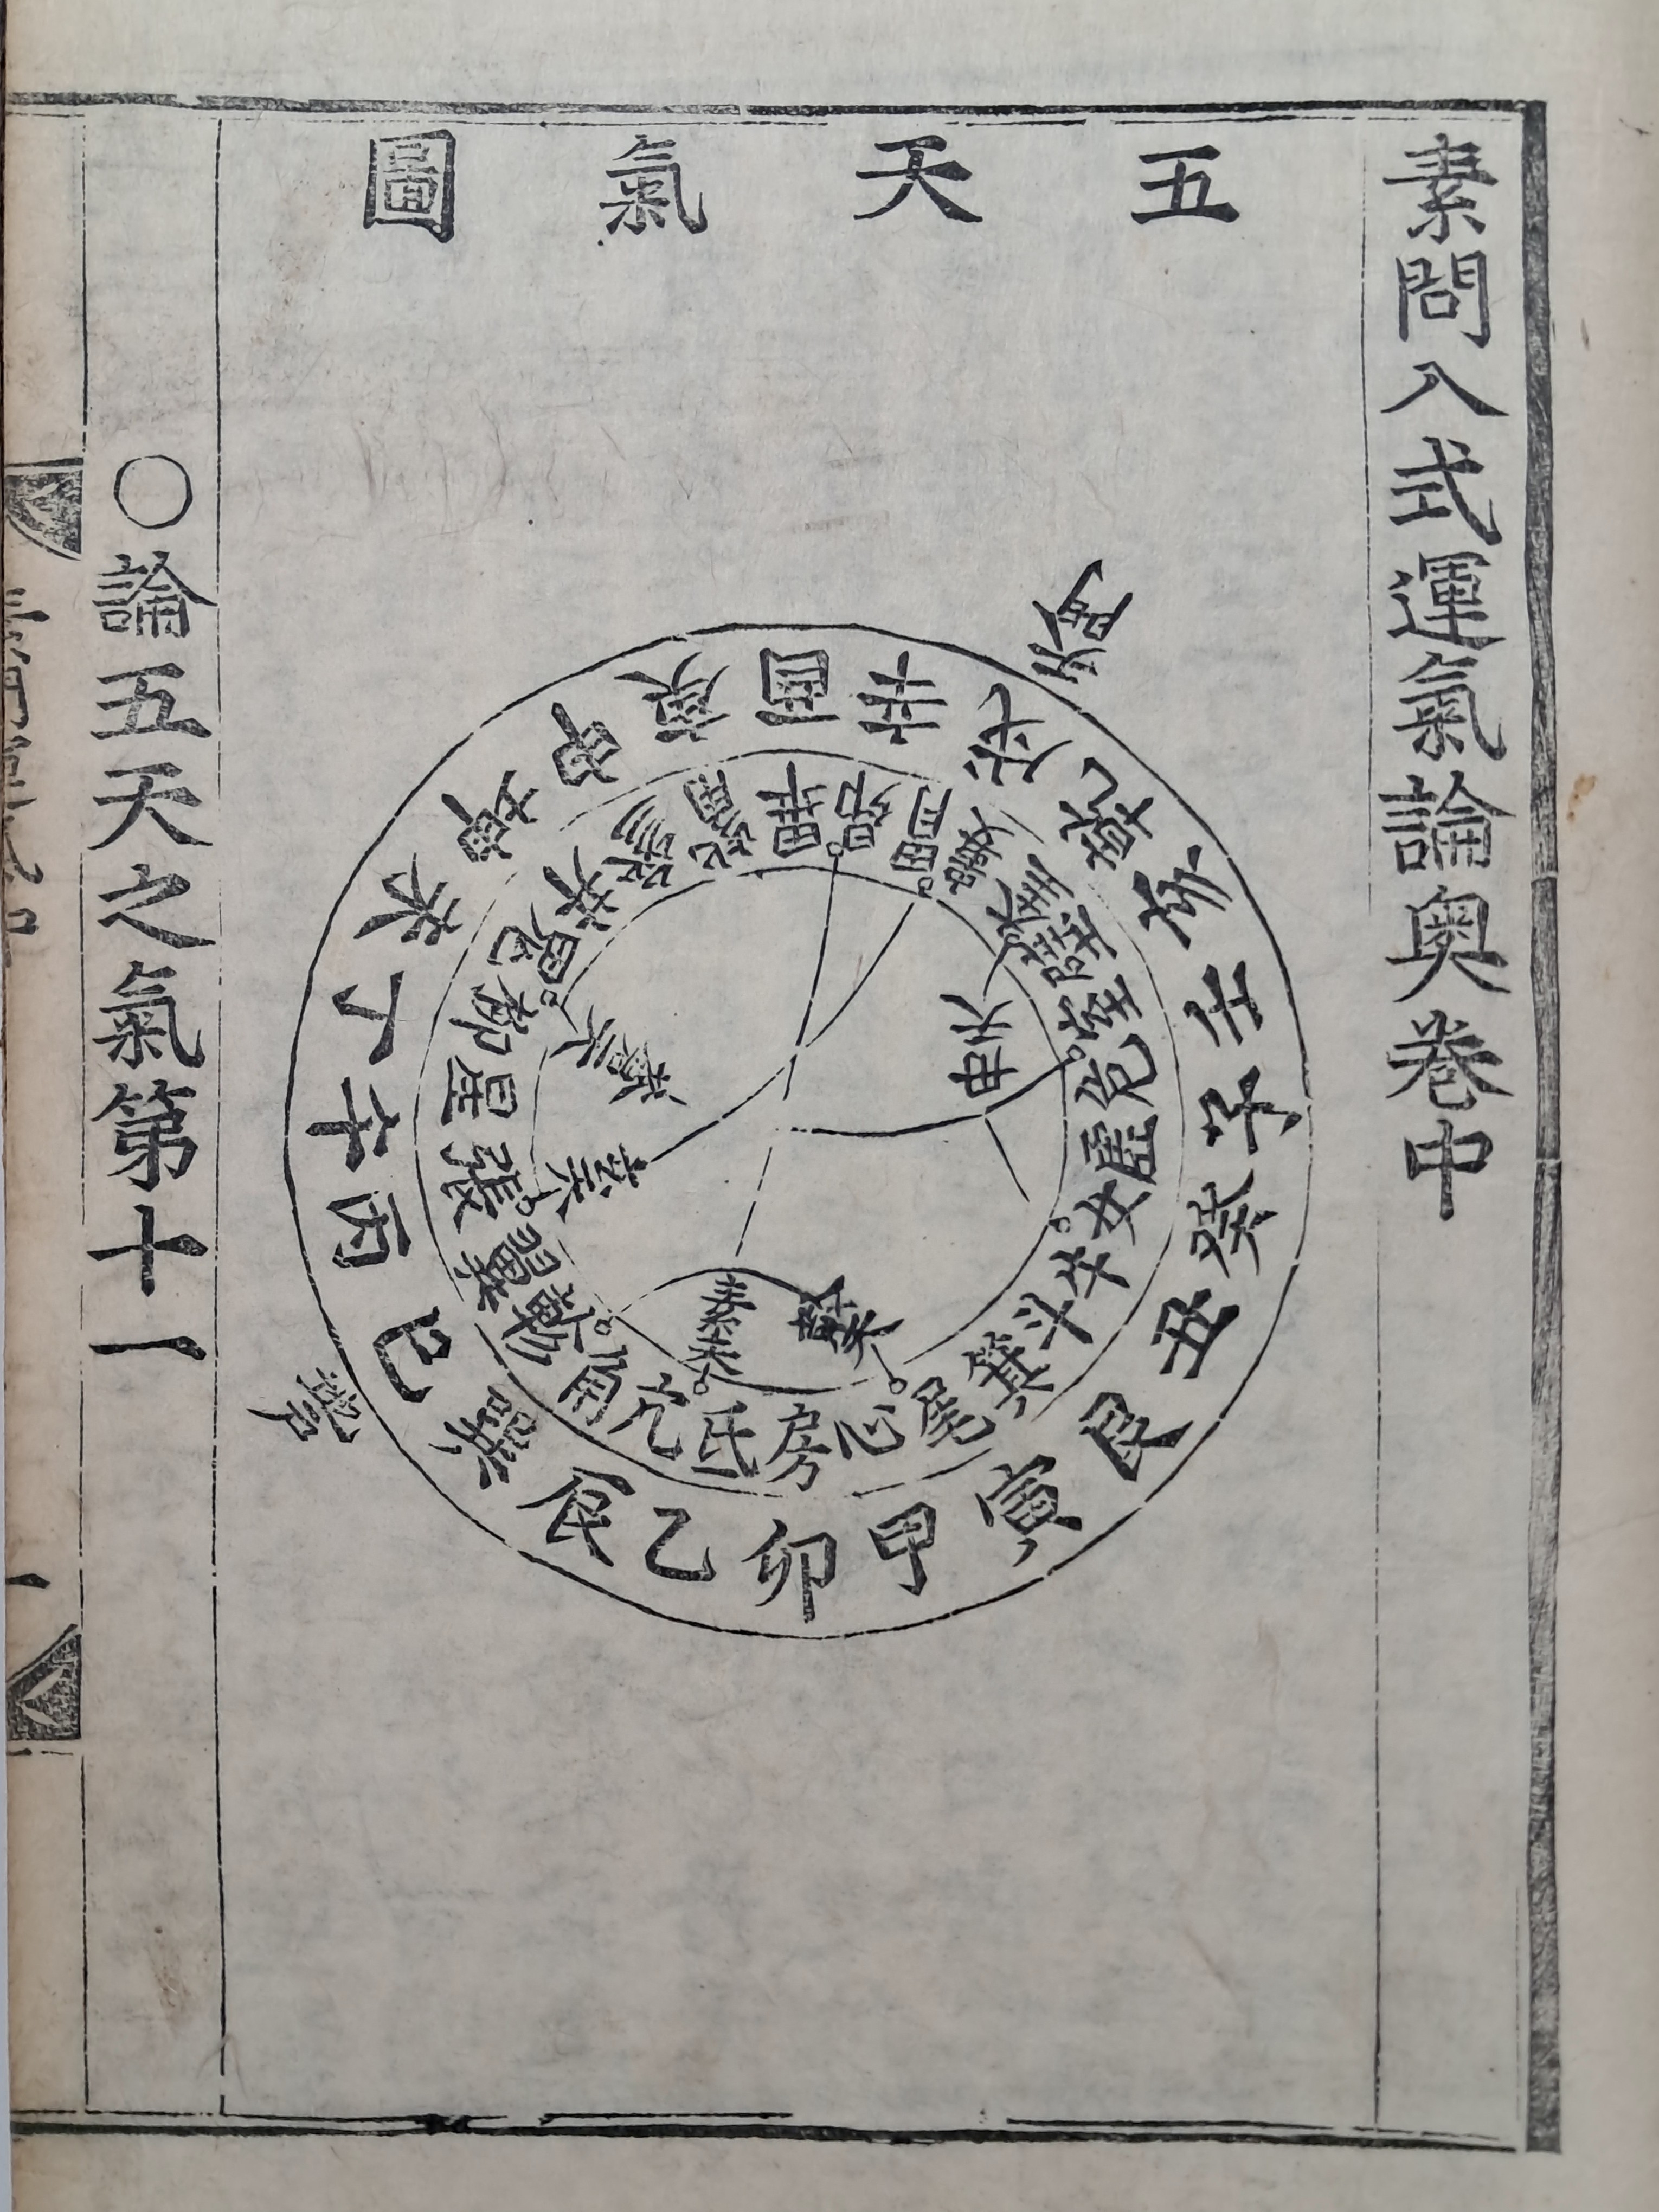 素問入式運氣論奥卷中
五天氣圖
天門
地戶
子癸丑艮寅甲卯乙辰巽巳丙午丁未坤申庚酉辛戌乾亥壬
角亢氐房心尾箕斗牛女虛危室壁奎婁胃昴畢觜參井鬼柳星張翼軫
丹天
蒼天
素天
〇論五天之氣第十一
一